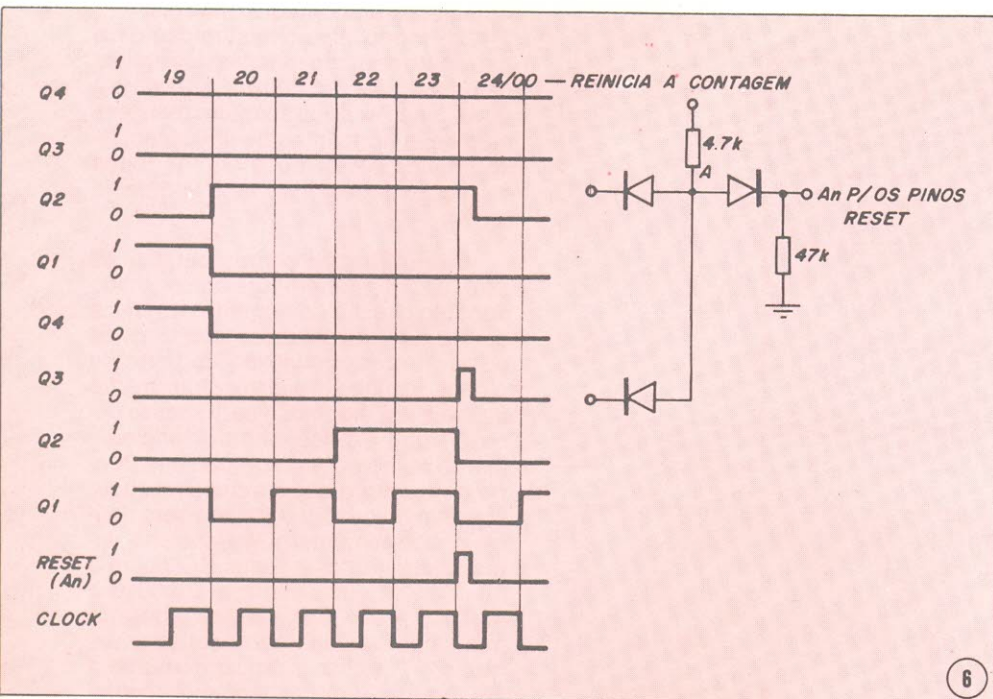 19 20 21 22 23 24/00 — REINICIA A CONTAGEM
Q4 1 0
Q3 1 0
Q2 1 0
Q1 1 0
Q4 1 0
Q3 1 0
Q2 1 0
Q1 1 0
RESET (An) 1 0
CLOCK
4.7k
A
An P/ OS PINOS
RESET
47k
6